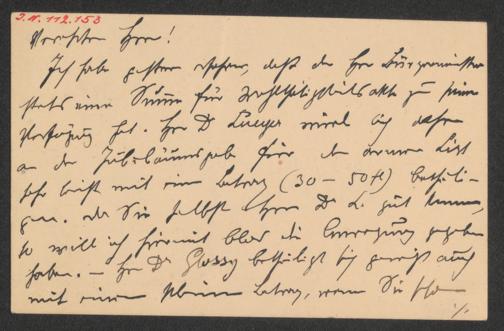 J.N. 112.153
Verehrter Herr!
Ich habe gestern erfahren, daß der Herr Bürgermeister
stets eine Summe für Wohlthätigkeitsakte zu seiner
Verfügung hat. Herr Dr Lueger wird sich daher
an der Jubiläumsgabe für den armen
sehr leicht mit einem Betrag (30 – 50 fl) betheili-
gen. Da Sie selbst Herrn Dr L. gut kennen,
so will ich hiermit blos die Anregung gegeben
haben. – Hr Dr Glossy betheiligt sich gewiß auch
mit einem kleinen Betrag, wenn Sie
./.